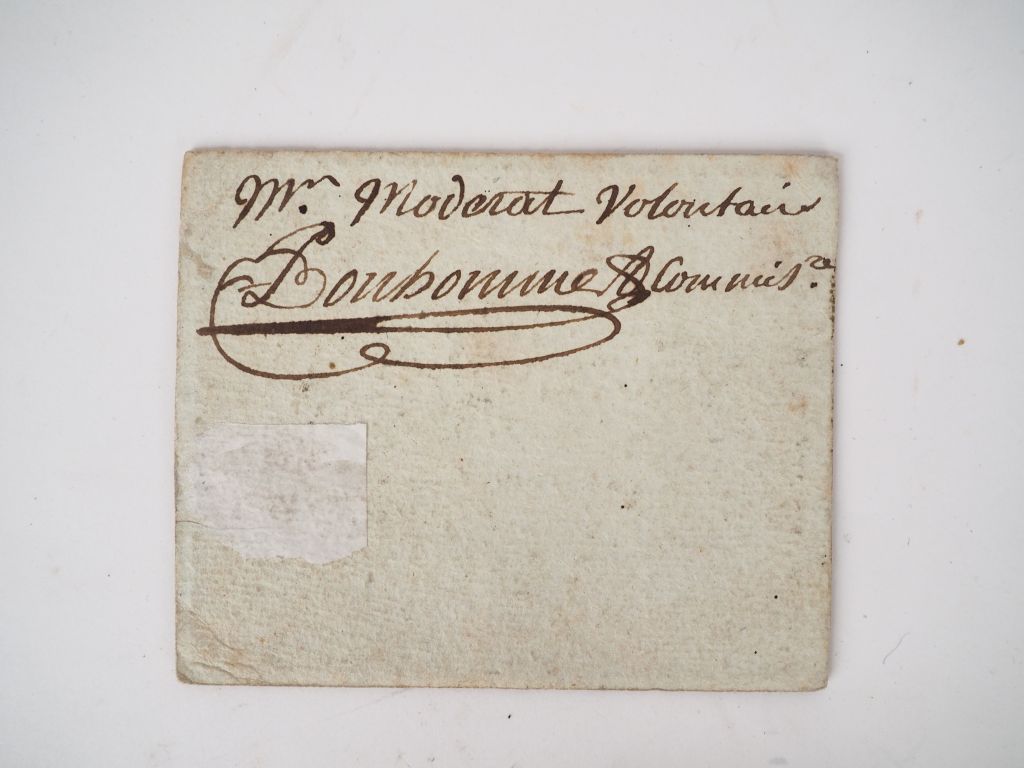 Mr. Moderat Volontair
Bonhomme Commis.re